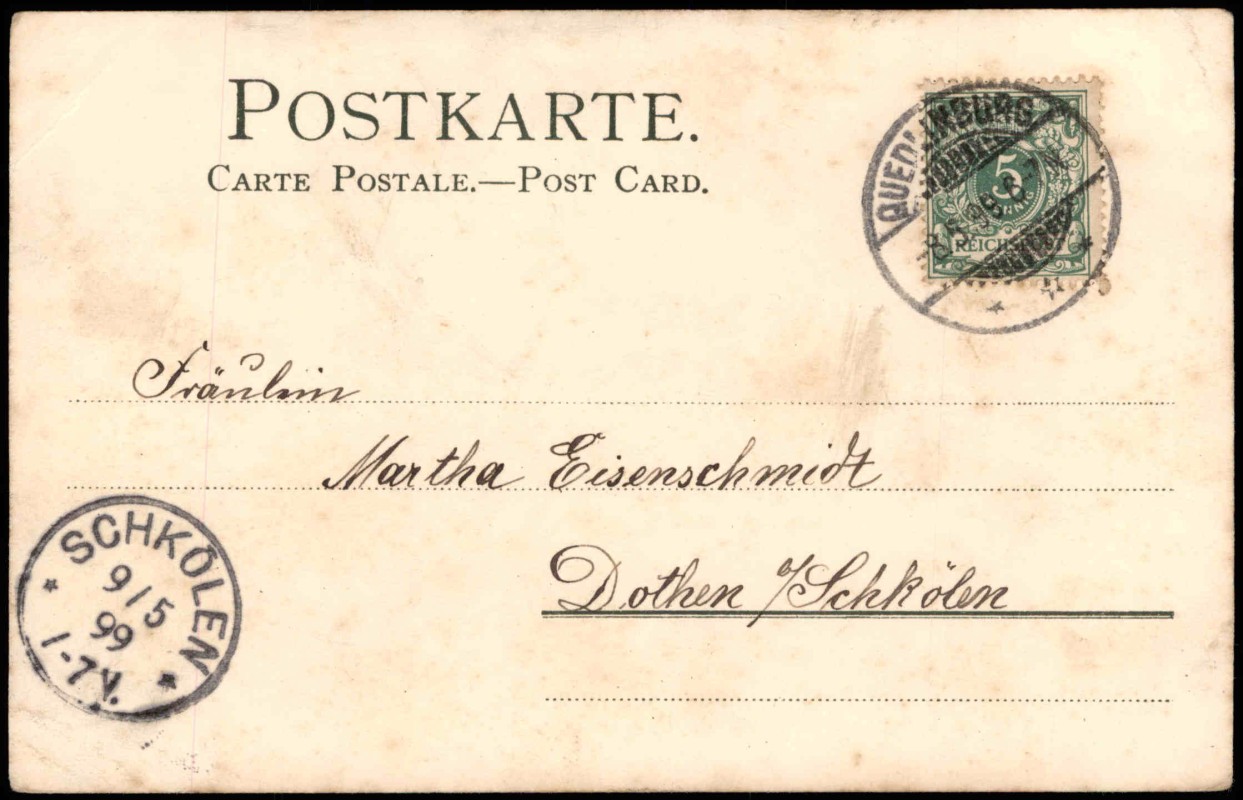 POSTKARTE.
CARTE POSTALE.—POST CARD.
QUEDLINBURG
8.5.99. 6-7N.
5
REICHSPOST
Fräulein
Martha Eisenschmidt
Dothen /Schkölen
SCHKÖLEN
9/5
99
1-7V.